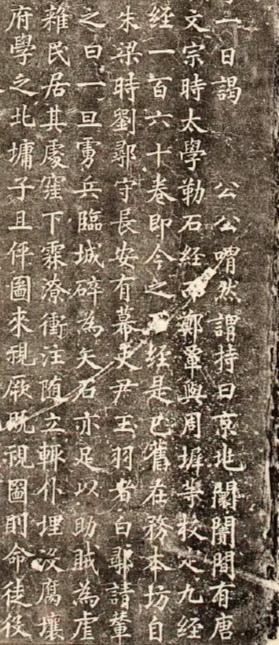 一日謁 公公喟然謂持曰京兆闤闠間有唐
文宗時太學勒石經而鄭覃與周墀等校定九經
經一百六十卷即今之石經是已舊在務本坊自
朱梁時劉鄩守長安有幕吏尹玉羽者白鄩請輦
之曰一旦虜兵臨城碎為矢石亦足以助賊為虐
雜民居其處窪下霖潦衝注随立輙仆埋没腐壤
府學之北墉子且伻圖來視厥既視圖則命徒役